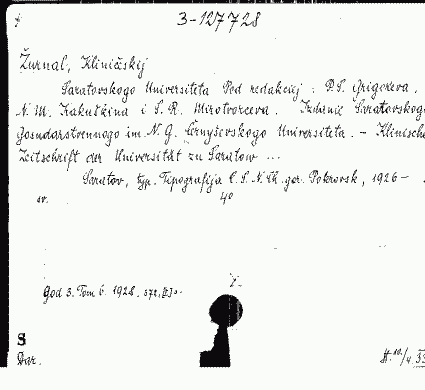 3-127728
Žurnal, Kliničskij
Saratovskogo Universiteta Pod redakciej : P.S. Grigoreva,
N. M. Kakuškina i S. R. Mirotvorceva. Izdanie Saratovskogo
Gosudarstvennogo im. N. G. Černyševskogo Universiteta. - Klinische
Zeitschrift der Universität zu Saratow ...
Saratov, typ. Tipografija gor. Pokrovsk, 1926 -
sv. 4°
God 3. Tom 6. 1928.
S
Dar.